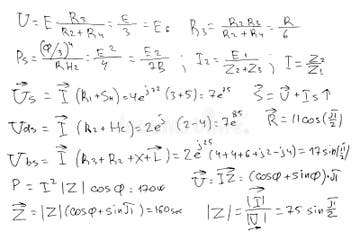 U = E R₃/(R₂+R₄) = E/3 = E₆   R₃ = R₂R₃/(R₂+R₄) = R/6
Pₛ = (φ/3)⁴/R_H₂ = E²/4 = E₂/7B ; I₂ = E₁/(Z₂+Z₃) ; I = Z²/Z₁
U⃗s = I⃗ (R₁+Sₙ) = 4e^j22 (3+5) = 7e^j25   S⃗ = U⃗ + Is ↑
U⃗ds = I⃗ (R₂+Hc) = 2e^j (2-4) = 7e^85   R⃗ = (1cos(√1/2)
U⃗bs = I⃗ (R₃+R₂+X+L⃗) = 2e^j25 (4+4+6+j2-j4) = 17sin(√1/2)
P = I² |Z| cosφ = 120w   U⃗ = I⃗Z⃗ = (cosφ+sinφ)·√1
Z⃗ = |Z|(cosφ+sin√1) = 160   |Z| = |I⃗|/|U⃗| = 75 sin √1/2